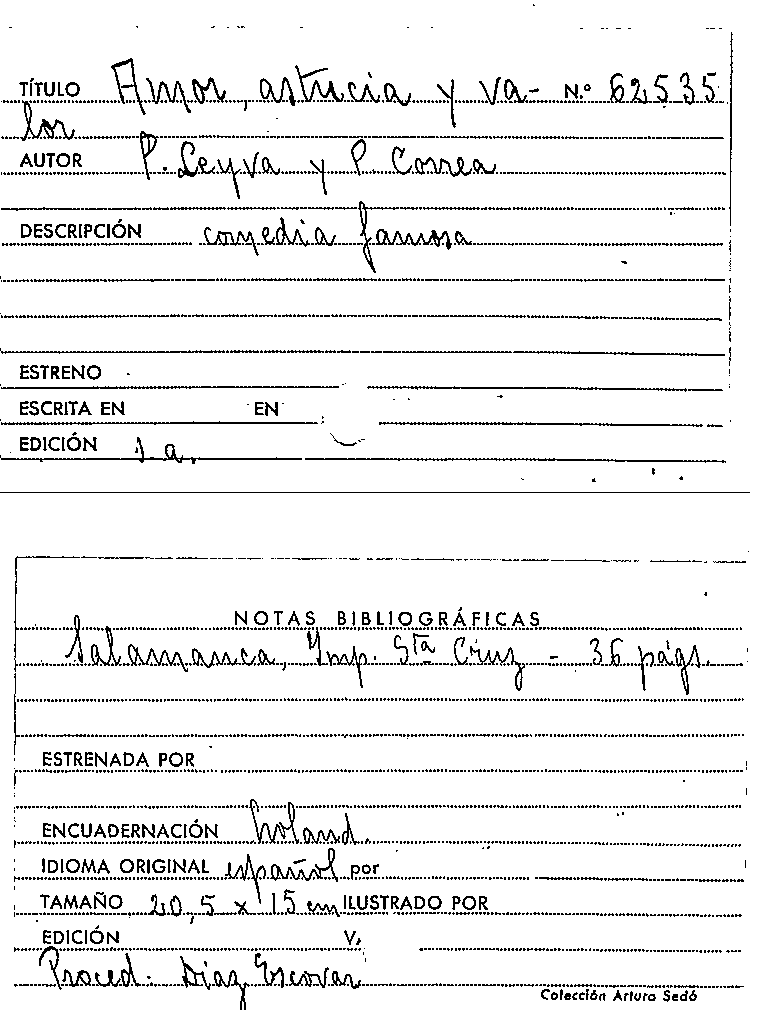 TÍTULO Amor, astucia y va- N.º 62535
lor
AUTOR P. Leyva y P. Correa
DESCRIPCIÓN comedia famosa
ESTRENO
ESCRITA EN EN
EDICIÓN s.a.
NOTAS BIBLIOGRÁFICAS
Salamanca, Imp. Sta Cruz - 36 págs.
ESTRENADA POR
ENCUADERNACIÓN holand.
IDIOMA ORIGINAL español por
TAMAÑO 20,5 x 15 cm ILUSTRADO POR
EDICIÓN V.
Proced. Díaz Escovar
Colección Arturo Sedó